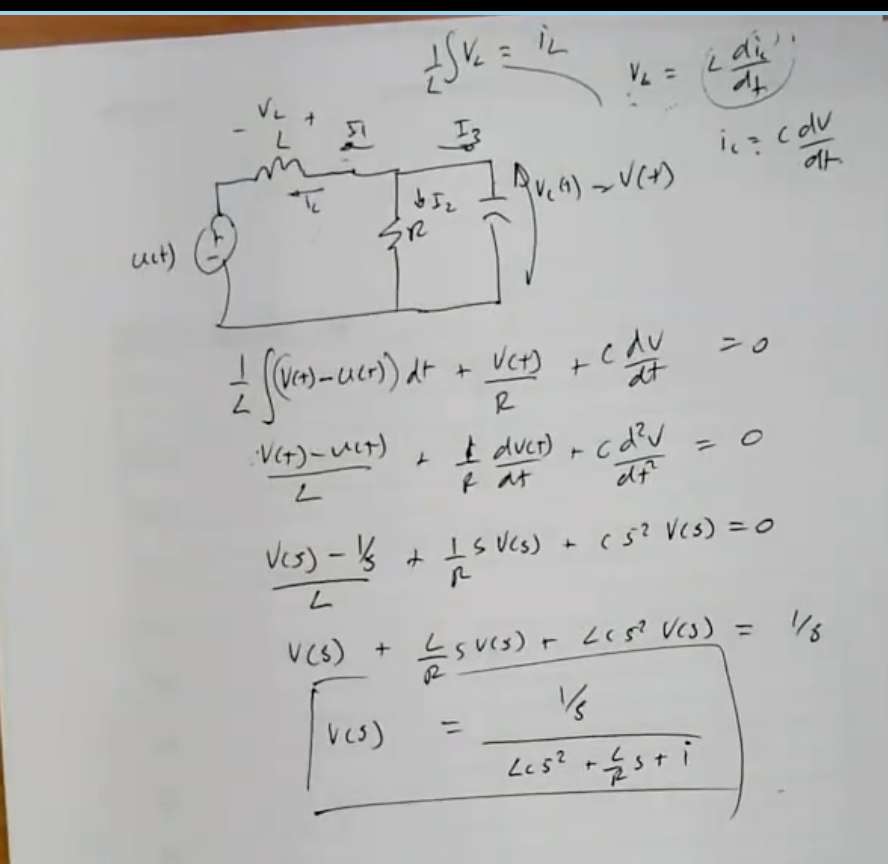 1/L ∫ V_L = i_L
V_L = L di_L/dt
i_c = C dV/dt
- V_L +
L
I1
I3
i_L
I2
R
V_c(t) ~ V(t)
u(t)
+
-
1/L ∫(V(t)-u(t)) dt + V(t)/R + C dV/dt = 0
V(t)-u(t)/L + 1/R dV(t)/dt + C d²V/dt² = 0
V(s) - 1/s/L + 1/R s V(s) + C s² V(s) = 0
V(s) + L/R s V(s) + LC s² V(s) = 1/s
V(s) = 1/s / LC s² + L/R s + 1